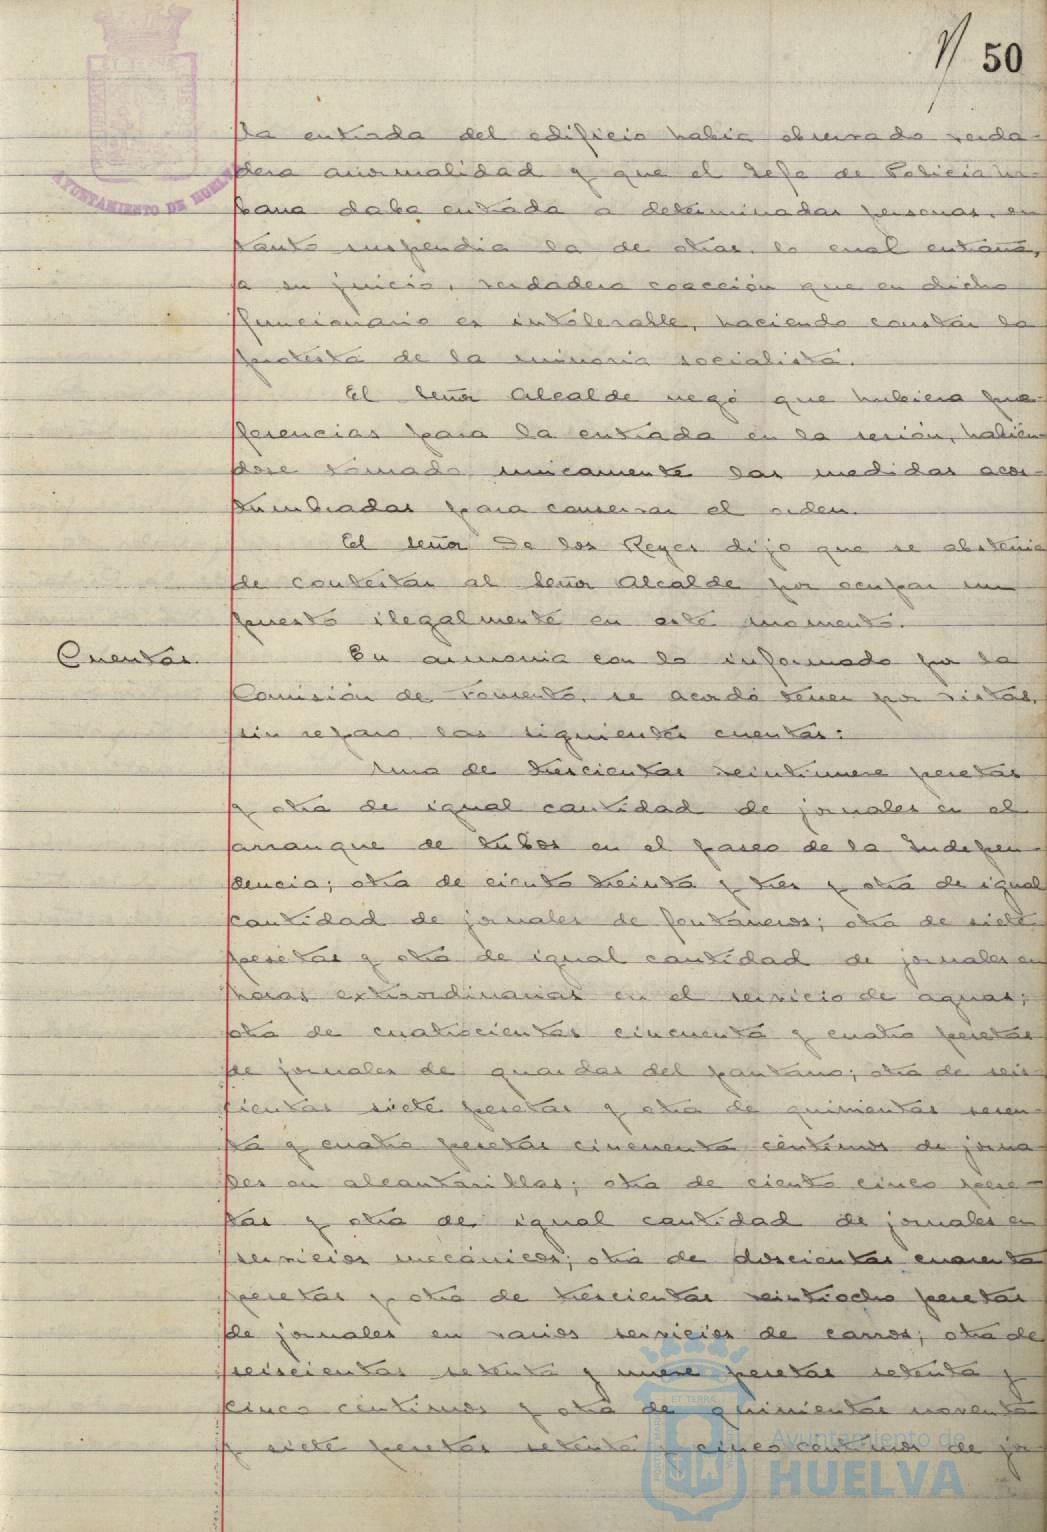 50
la entrada del edificio habia observado verda-
dera anormalidad y que el Jefe de Policia ur-
bana daba entrada a determinadas personas, en
tanto suspendia la de otras, lo cual entraña,
a su juicio, verdadera coacción que en dicho
funcionario es intolerable, haciendo constar la
protesta de la minoria socialista.
El Señor Alcalde negó que hubiera pre-
ferencias para la entrada en la sesión, habien-
dose tomado unicamente las medidas acos-
tumbradas para conservar el orden.
El señor De los Reyes dijo que se abstenia
de contestar al Señor Alcalde por ocupar un
puesto ilegalmente en este momento.
Cuentas.
En armonia con lo informado por la
Comisión de Fomento, se acordó tener por vistas,
sin reparo, las siguientes cuentas:
Una de trescientas veintinueve pesetas
y otra de igual cantidad de jornales en el
arranque de tubos en el paseo de la Indepen-
dencia; otra de ciento treinta y tres y otra de igual
cantidad de jornales de fontaneros; otra de siete
pesetas y otra de igual cantidad de jornales en
horas extraordinarias en el servicio de aguas;
otra de cuatrocientas cincuenta y cuatro pesetas
de jornales de guardas del pantano; otra de seis-
cientas siete pesetas y otra de quinientas sesen-
ta y cuatro pesetas cincuenta centimos de jorna-
les en alcantarillas; otra de ciento cinco pese-
tas y otra de igual cantidad de jornales en
servicios mecánicos; otra de doscientas cuarenta
pesetas y otra de trescientas veintiocho pesetas
de jornales en varios servicios de carros; otra de
seiscientas setenta y nueve pesetas setenta y
cinco centimos y otra de quinientas noventa
y siete pesetas setenta y cinco centimos de jor
AYUNTAMIENTO DE HUELVA
Ayuntamiento de
HUELVA